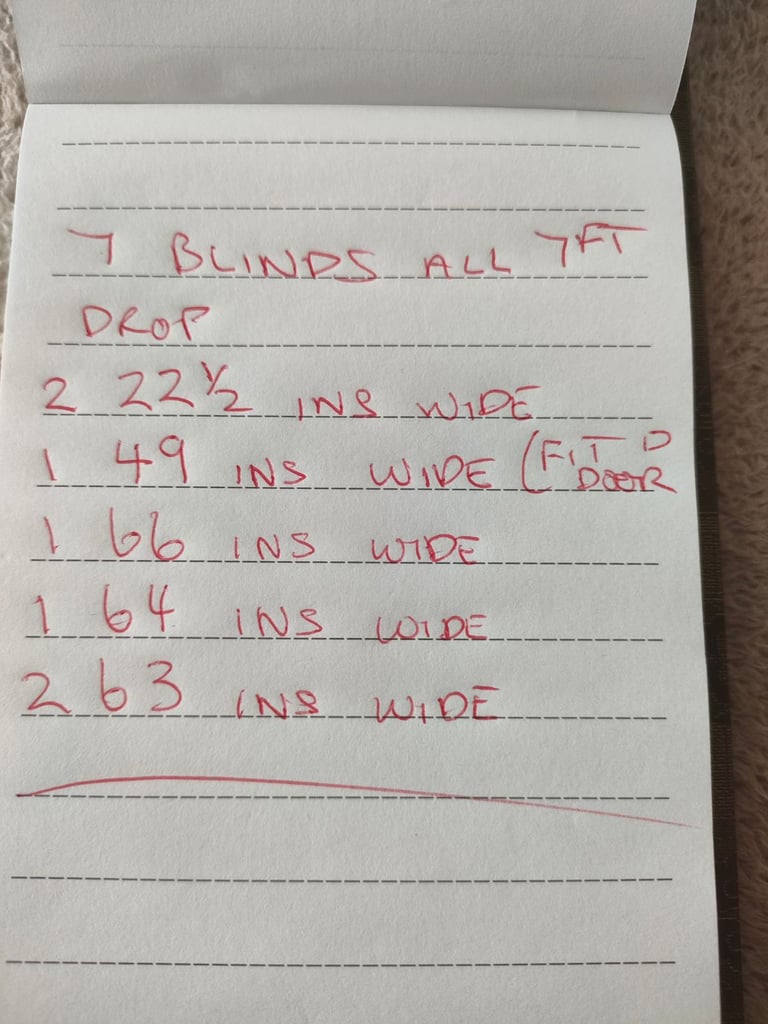 7 BLINDS ALL 7FT
DROP
2 22½ INS WIDE
1 49 INS WIDE (FIT D
DOOR
1 66 INS WIDE
1 64 INS WIDE
2 63 INS WIDE